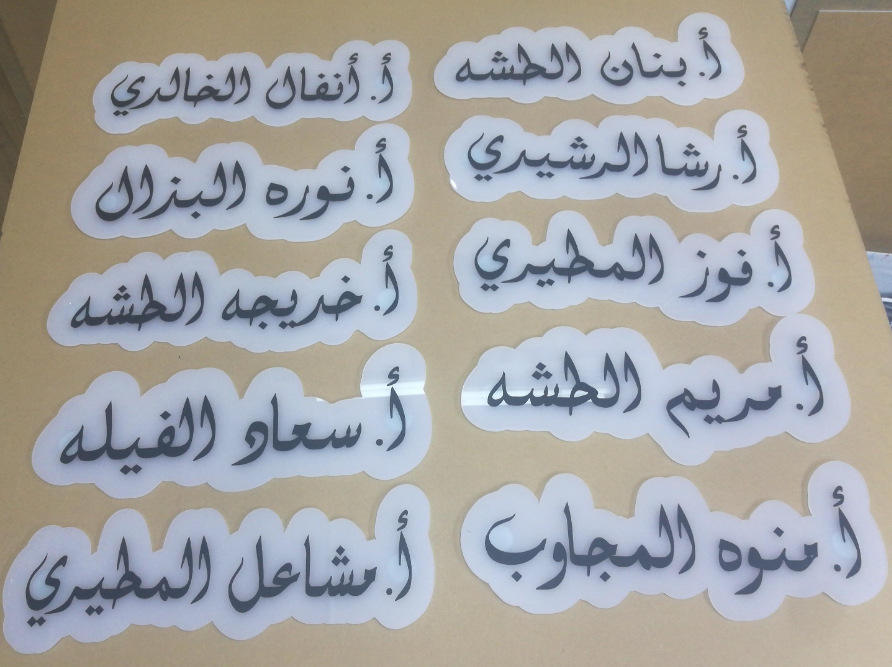 أ. بنان الطشه
أ. رشا الرشيدي
أ. فوز المطيري
أ. مريم الطشه
أ. منوه المجاوب
أ. أنفال الخالدي
أ. نوره البذال
أ. خديجه الطشه
أ. سعاد الفيله
أ. مشاعل المطيري